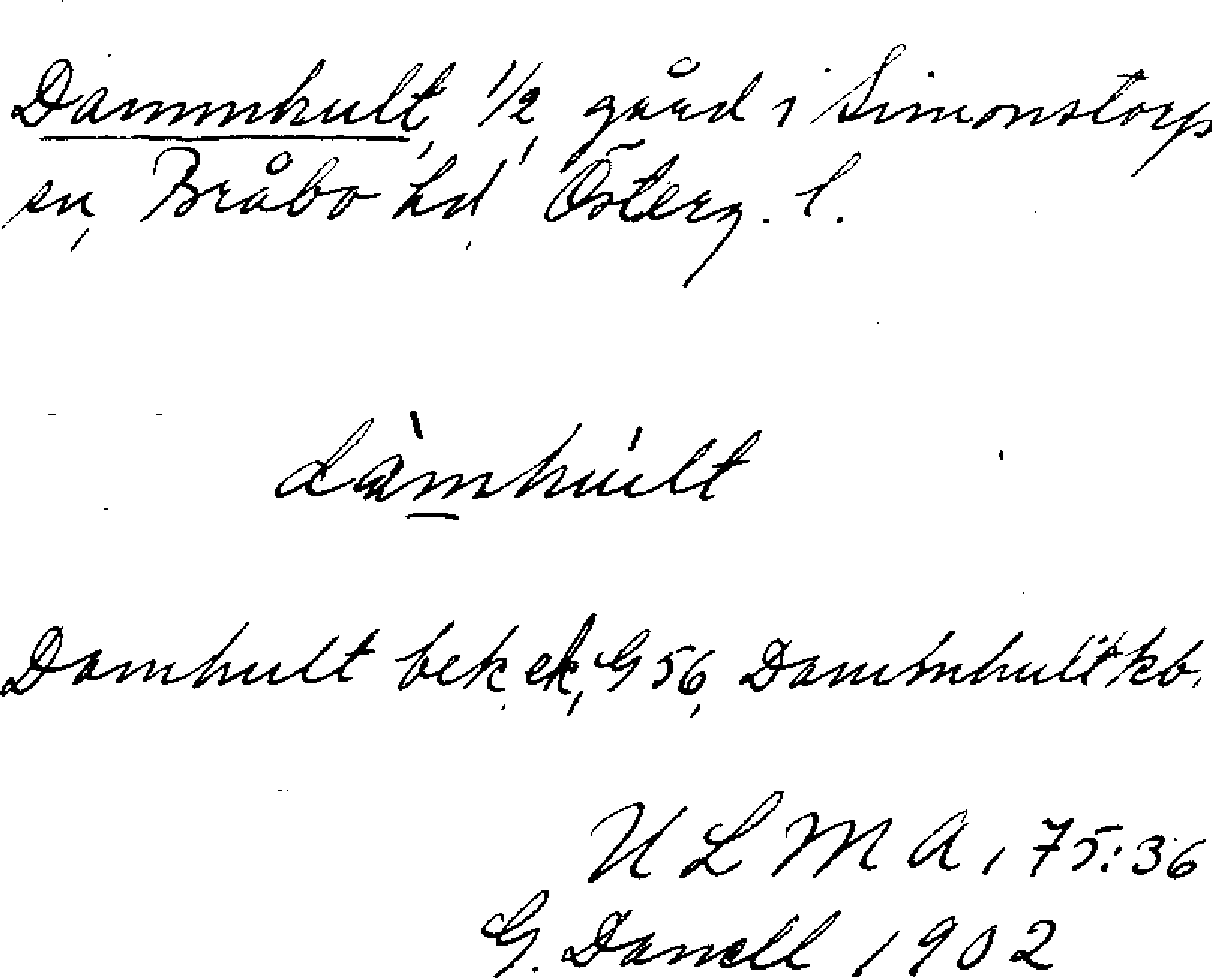 Dammhult, 1/2 gård i Simonstorps
sn, Bråbo hd, Österg. l.
dàmhúlt
Damhult bek ek, G 56, Dammhult kb.
ULMA, 75:36
G. Danell 1902